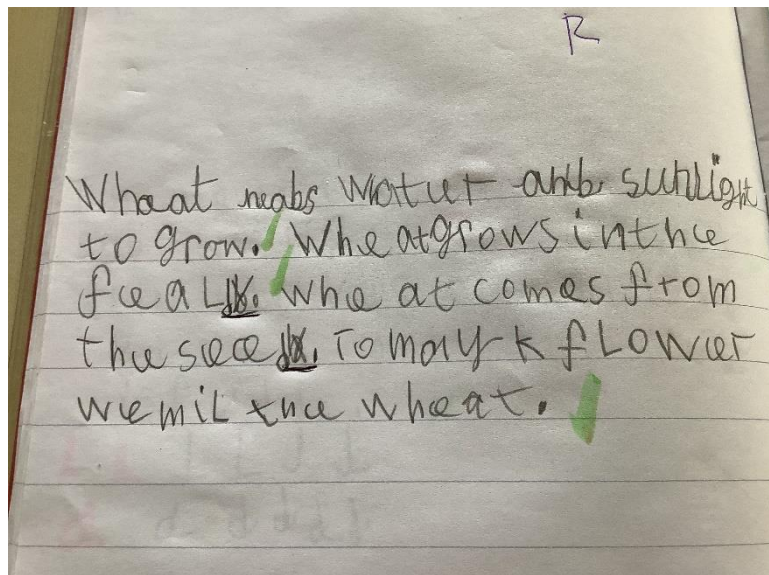 R
Wheat neabs watur anb sunlight
to grow. Whe at grows in the
feald. whe at comes from
the seed. To mayk flower
we mil the wheat.